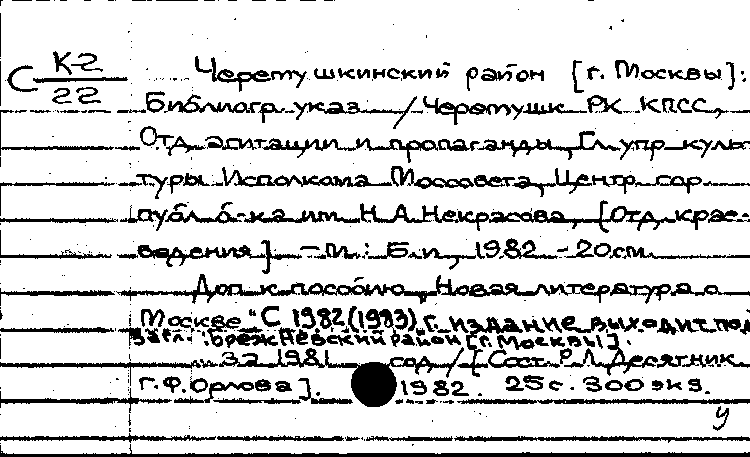 С К-2
22
Черемушкинский район [г. Москвы]:
Библиогр. указ. / Черемушк. РК КПСС,
Отд. агитации и пропаганды, Гл. упр. куль-
туры Исполкома Моссовета, Центр. гор.
публ. б-ка им. Н.А. Некрасова, [Отд. крае-
ведения]. – М.: Б.и., 1982 – 20 см.
Доп. к пособию „Новая литература о
Москве" С 1982 (1983) г. издание выходит под
загл.: Брежневский район [г. Москвы].
... за 1981 год / [Сост. Р.Л. Десятник,
Г.Ф. Орлова]. 1982. 25 с. 300 экз.
У